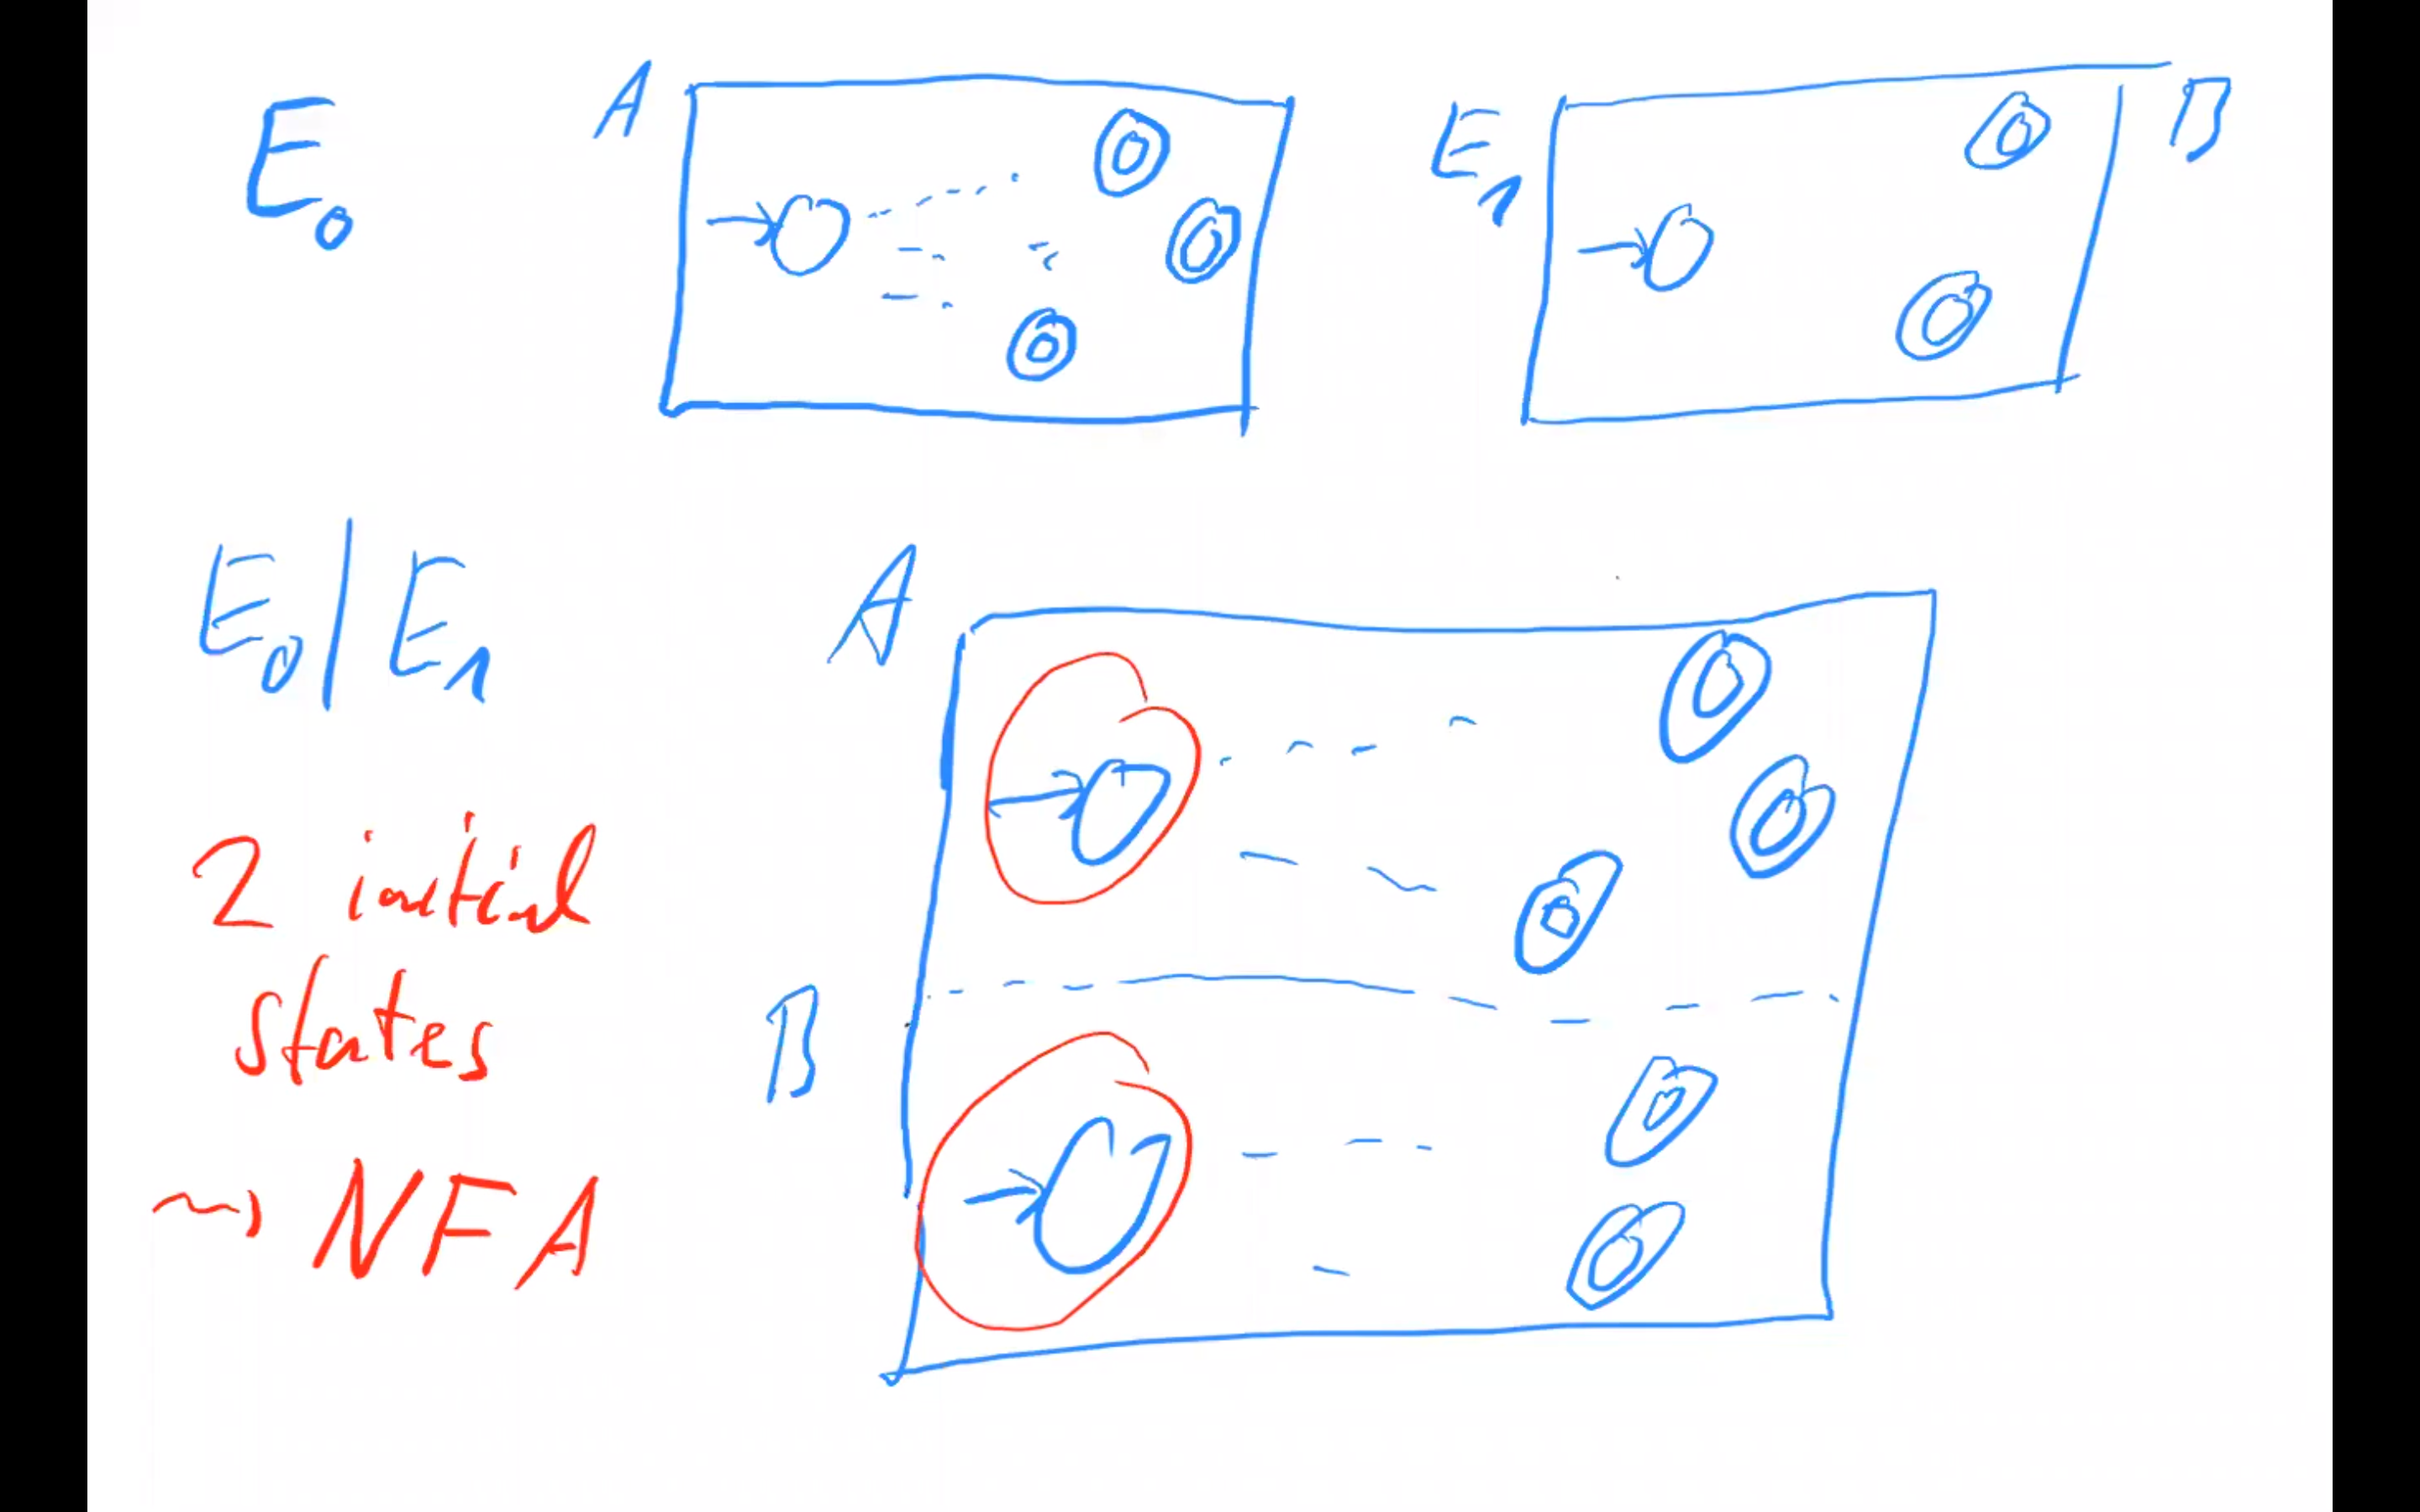 E₀ A E₁ B
E₀|E₁ A
B
2 initial
states
⇝ NFA